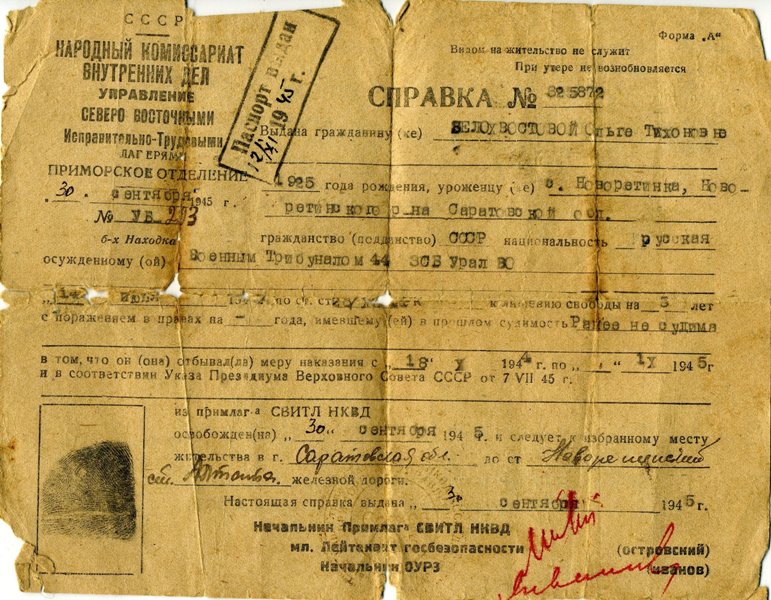 СССР
НАРОДНЫЙ КОМИССАРИАТ
ВНУТРЕННИХ ДЕЛ
УПРАВЛЕНИЕ
СЕВЕРО ВОСТОЧНЫМИ
Исправительно-Трудовыми
ЛАГЕРЯМИ
ПРИМОРСКОЕ ОТДЕЛЕНИЕ
30 сентября 1945 г.
№ УБ 213
б-х Находка
Паспорт выдан
12/XI 1945 г.
Форма „А“
Видом на жительство не служит
При утере не возобновляется
СПРАВКА № 325872
Выдана гражданину (ке) БЕЛОХВОСТОВОЙ Ольге Тихоновне
1925 года рождения, уроженцу (ке) с. Новорепинка, Ново-
репинского р-на Саратовской обл.
гражданство (подданство) СССР национальность русская
осужденному (ой) Военным Трибуналом 44 ЗСБ Урал ВО
„14“ июля 194 по ст. ст. к лишению свободы на 5 лет
с поражением в правах на - года, имевшему (ей) в прошлом судимость Ранее не судима
в том, что он (она) отбывал(ла) меру наказания с „18“ X 1944 г. по „ “ IX 1945 г
и в соответствии Указа Президиума Верховного Совета СССР от 7 VII 45 г.
из примлага СВИТЛ НКВД
освобожден(на) „30“ сентября 1945 г. и следует к избранному месту
жительства в г. Саратовская обл. до ст
ст. железной дороги.
Настоящая справка выдана „30“ сентября 1945 г.
Начальник Примлага СВИТЛ НКВД
мл. Лейтенант госбезопасности (островский)
Начальник ОУРЗ (иванов)